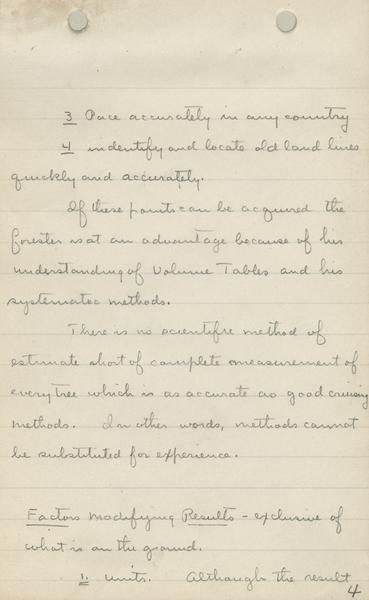 3 Pace accurately in any country
4 indentify and locate old land lines
quickly and accurately.
If these points can be acquired the
forester is at an advantage because of his
understanding of Volume Tables and his
systematic methods.
There is no scientific method of
estimate short of complete measurement of
every tree which is as accurate as good cruising
methods. In other words, methods cannot
be substituted for experience.
Factors Modifying Results - exclusive of
what is on the ground.
1. units. Although the result
4